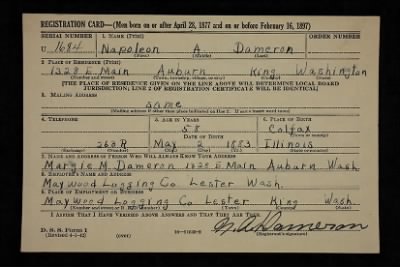 REGISTRATION CARD—(Men born on or after April 28, 1877 and on or before February 16, 1897)
SERIAL NUMBER 1. NAME (Print)
U 1684 Napoleon A Dameron
(First) (Middle) (Last)
2. PLACE OF RESIDENCE (Print)
1328 E Main Auburn King Washington
(Number and street) (Town, township, village, or city) (County) (State)
[THE PLACE OF RESIDENCE GIVEN ON THE LINE ABOVE WILL DETERMINE LOCAL BOARD
JURISDICTION; LINE 2 OF REGISTRATION CERTIFICATE WILL BE IDENTICAL]
3. MAILING ADDRESS
same
[Mailing address if other than place indicated on line 2. If same insert word same]
4. TELEPHONE 5. AGE IN YEARS 6. PLACE OF BIRTH
58 Colfax
DATE OF BIRTH (Town or county)
268R May 2 1883 Illinois
(Exchange) (Number) (Mo.) (Day) (Yr.) (State or country)
7. NAME AND ADDRESS OF PERSON WHO WILL ALWAYS KNOW YOUR ADDRESS
Margie M. Dameron 1328 E Main Auburn Wash
8. EMPLOYER'S NAME AND ADDRESS
Maywood Logging Co Lester Wash.
9. PLACE OF EMPLOYMENT OR BUSINESS
Maywood Logging Co Lester King Wash.
(Number and street or R. F. D. number) (Town) (County) (State)
I AFFIRM THAT I HAVE VERIFIED ABOVE ANSWERS AND THAT THEY ARE TRUE.
N. A. Dameron
D. S. S. Form 1
(Revised 4-1-42) (over) (Registrant's signature)